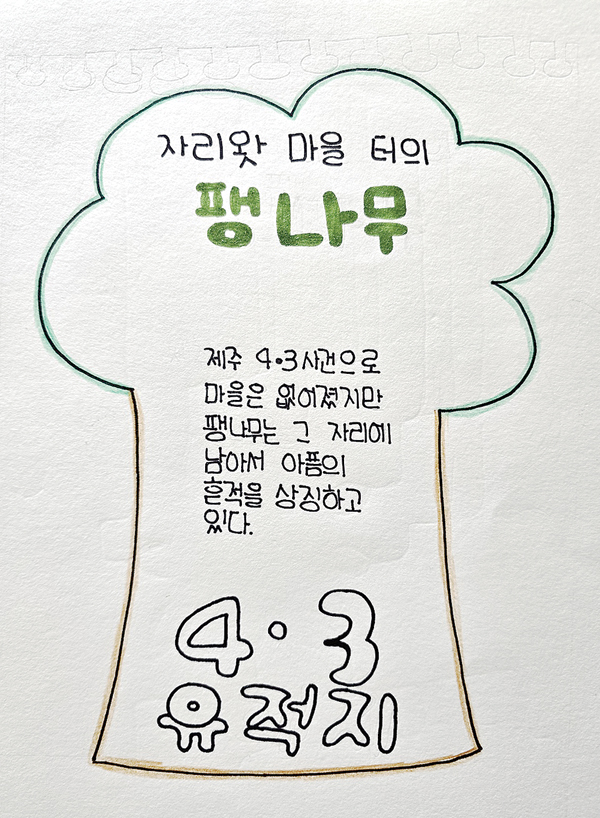 자리왓 마을 터의
팽나무
제주 4•3사건으로
마을은 없어졌지만
팽나무는 그 자리에
남아서 아픔의
흔적을 상징하고
있다.
4•3
유적지